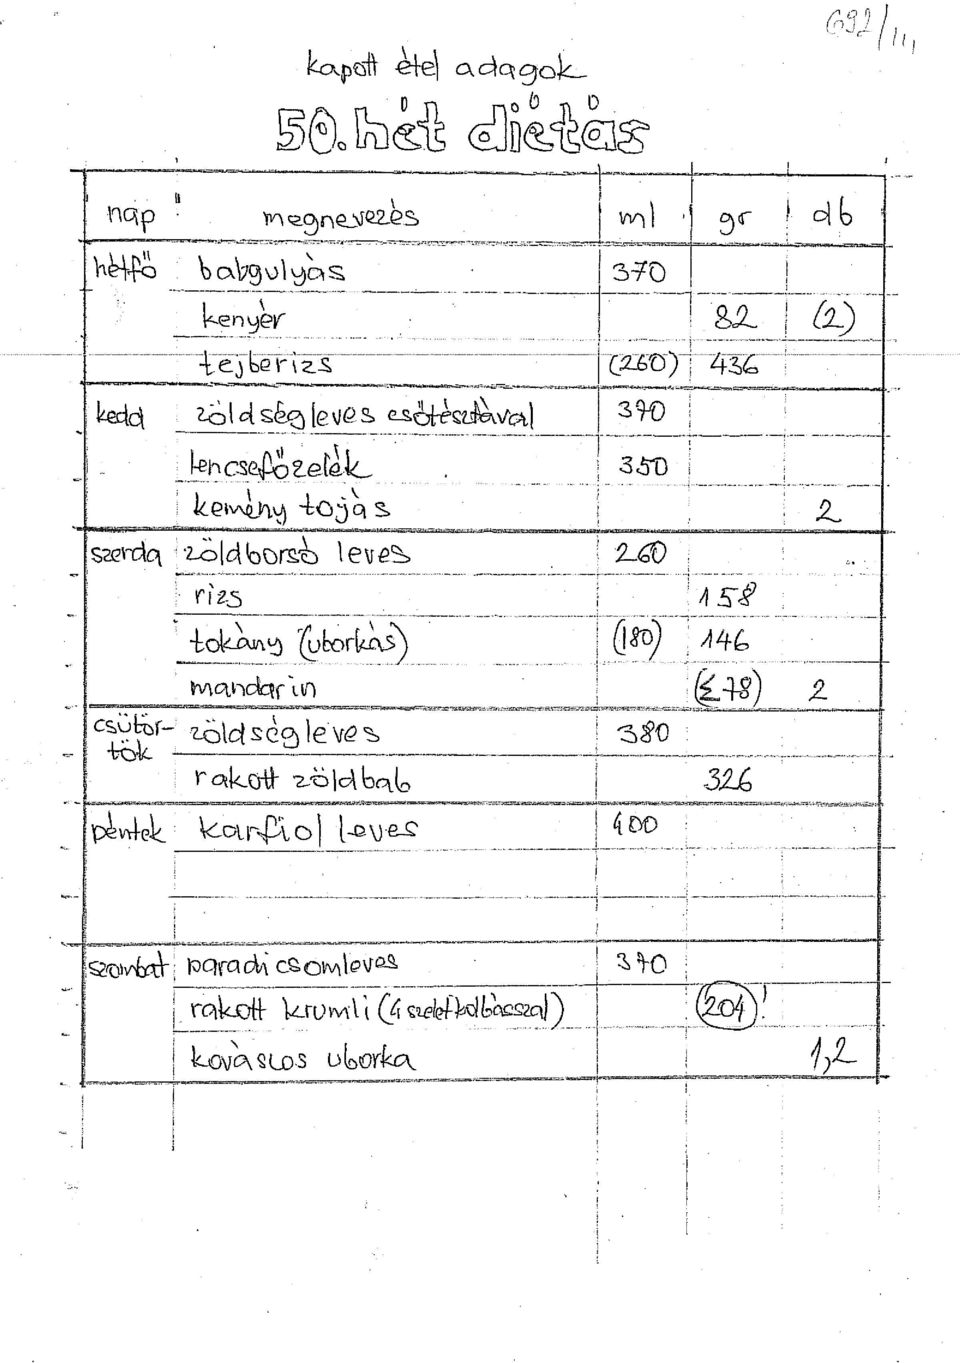 692/III
kapott étel adagok
50. hét diétás
nap megnevezés ml gr db
hétfő babgulyás 370
kenyér 82 (2)
tejberizs (260) 436
kedd zöldségleves csőtésztával 370
lencsefőzelék 350
kemény tojás 2
szerda zöldborsó leves 260
rizs 158
tokány (uborkás) (180) 146
mandarin (Σ78) 2
csütör-
tök zöldségleves 380
rakott zöldbab 326
péntek karfiol leves 400
szombat paradicsomleves 370
rakott krumli (4 szelet kolbásszal) (204)!
kovászos uborka 1,2